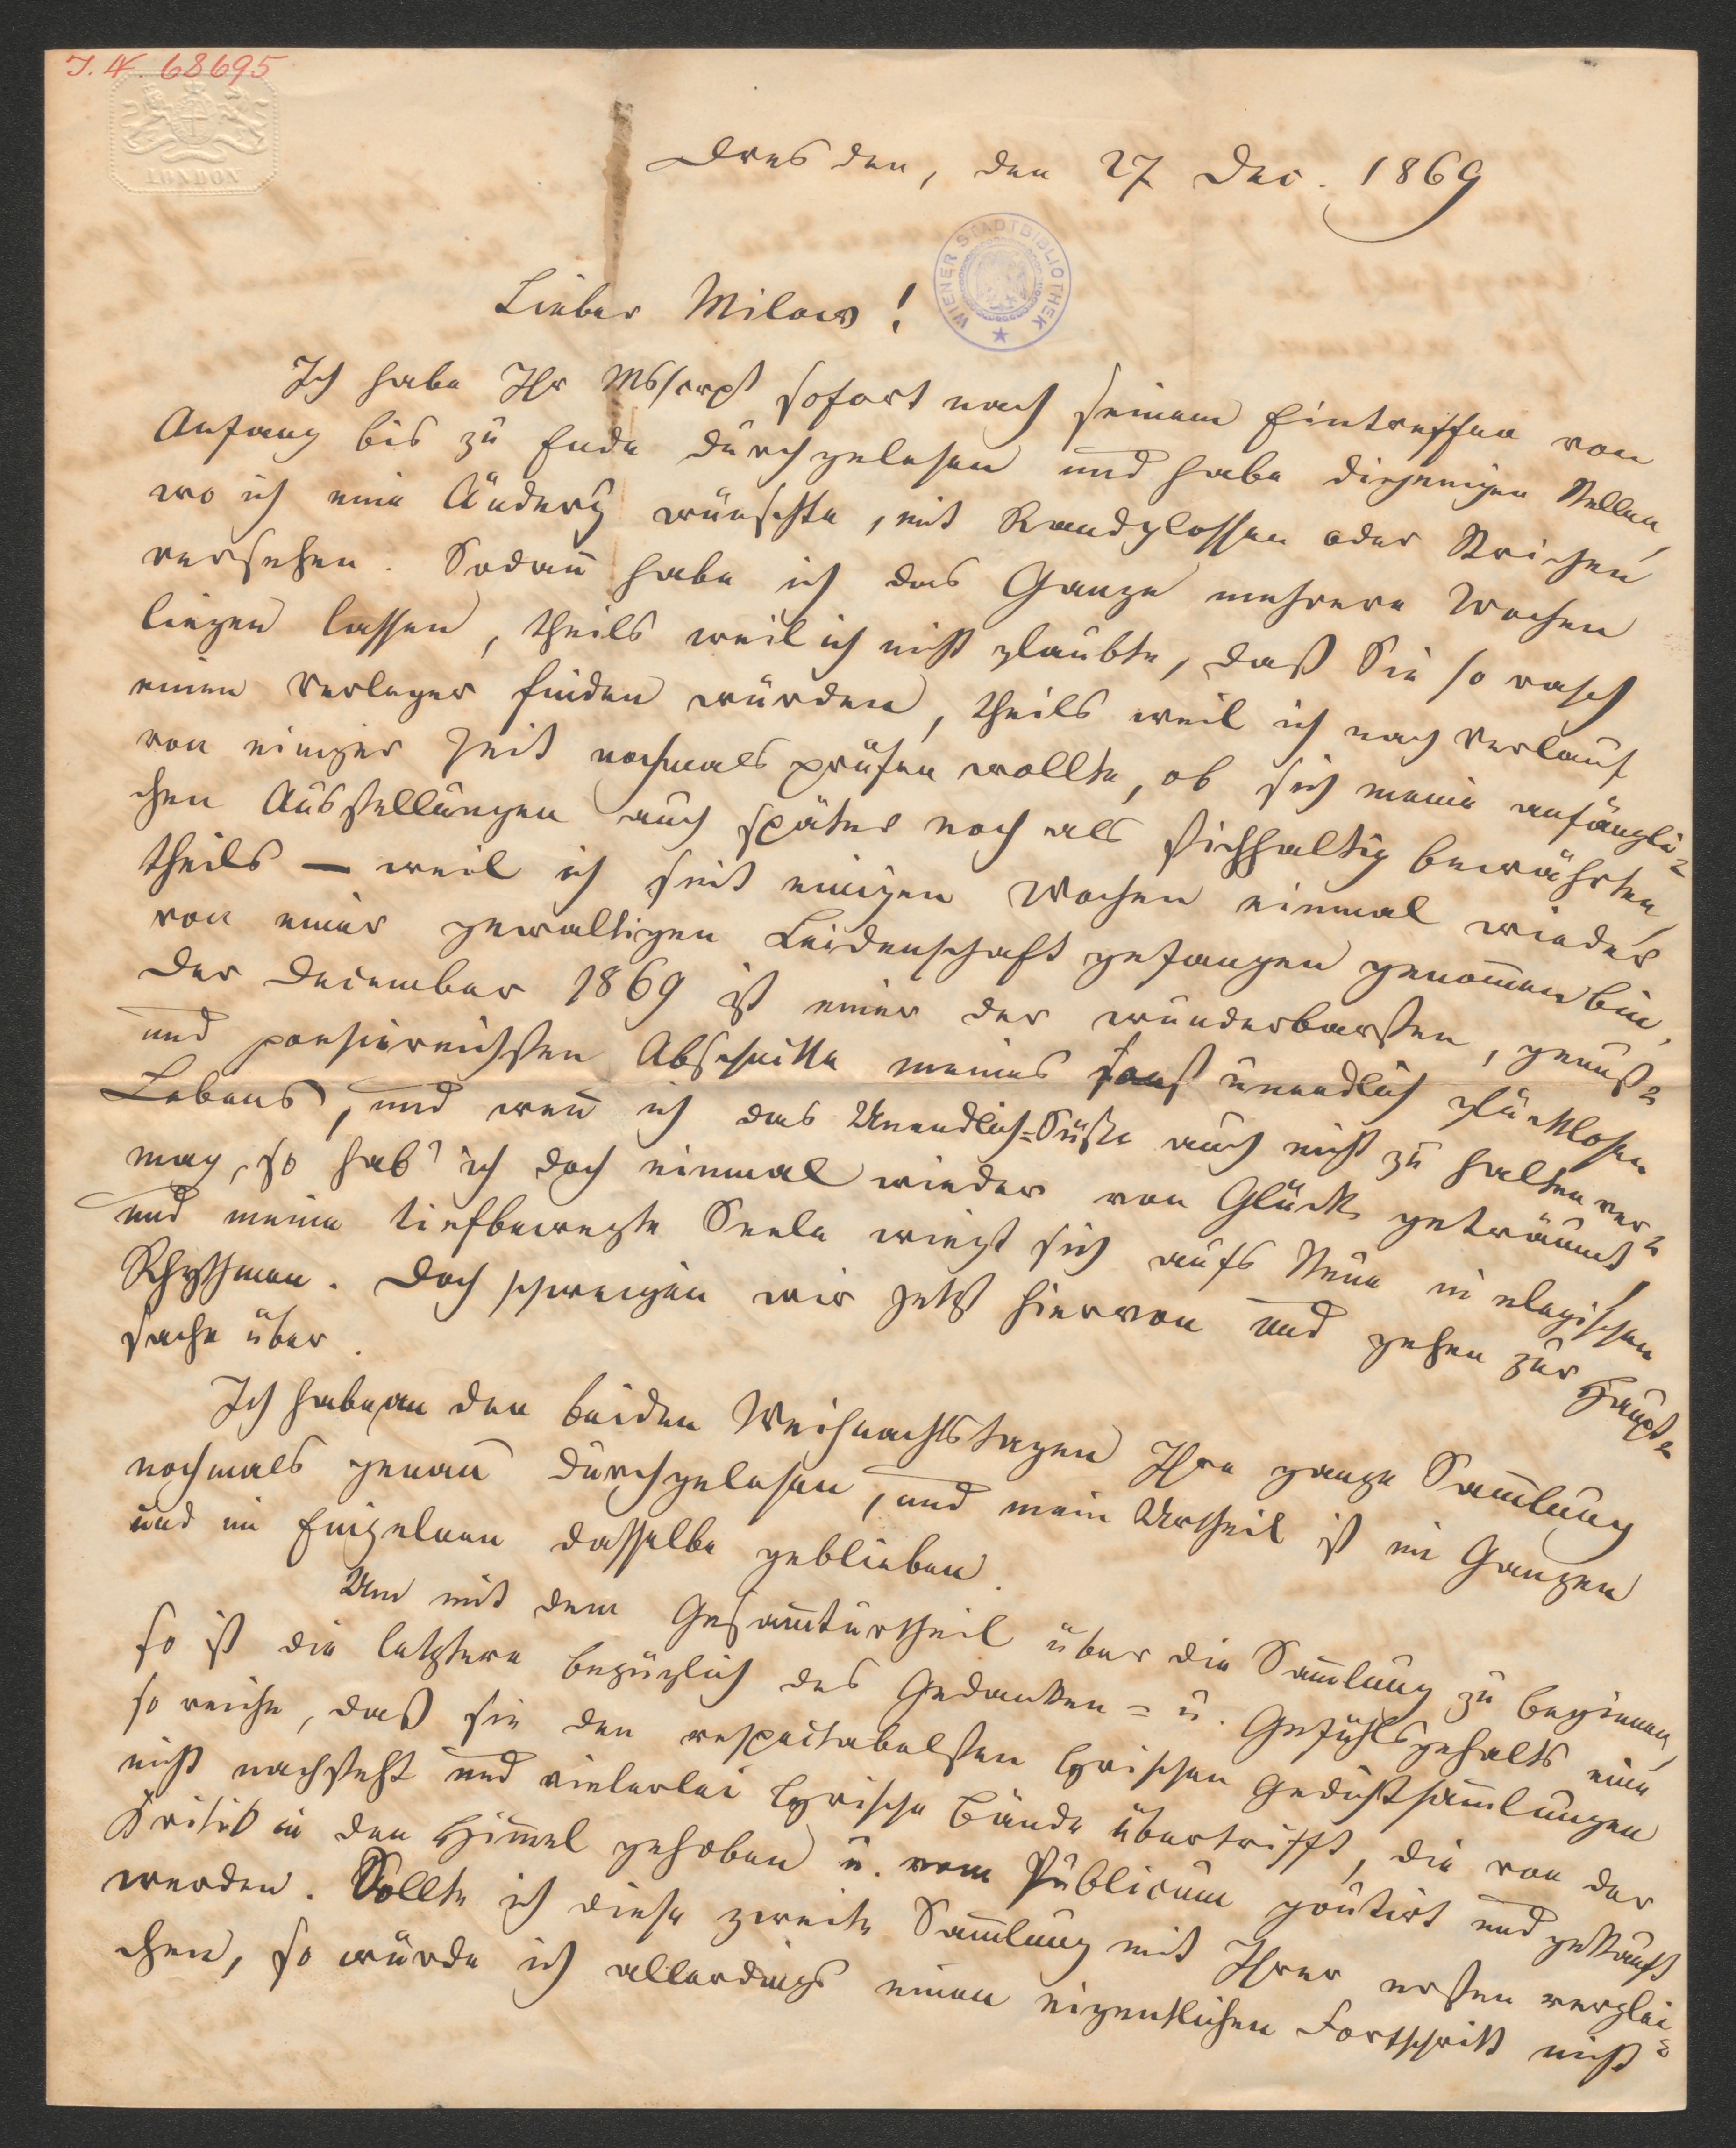 I. N. 68695
LONDON
Dresden, den 27 Dec. 1869
WIENER STADTBIBLIOTHEK
Lieber Milow!
Ich habe Ihr Mßcrpt sofort nach seinem Eintreffen von
Anfang bis zu Ende durchgelesen und habe diejenigen Stellen,
wo ich eine Änderg wünschte, mit Randglossen oder Strichen
versehen. Sodan̄ habe ich das Ganze mehrere Wochen
liegen lassen, theils weil ich nicht glaubte, daß Sie so rasch
einen Verleger finden würden, theils weil ich nach Verlauf
von einiger Zeit nochmals prüfen wollte, ob sich meine anfängli-
chen Ausstellungen auch später noch als stichhaltig bewährten,
theils — weil ich seit einigen Wochen einmal wieder
von einer gewaltigen Leidenschaft gefangen genom̄en bin.
Der December 1869 ist einer der wunderbarsten, genuß-
und poesiereichsten Abschnitte meines sonst unendlich glücklosen
Lebens, und wen̄ ich das Unendlich-Süße auch nicht zu halten ver-
mag, so hab' ich doch einmal wieder von Glück geträumt,
und meine tiefbewegte Seele wiegt sich aufs Neue in elegischen
Rhythmen. Doch schweigen wir jetzt hiervon und gehen zur Haupt-
sache über.
Ich habe an den beiden Weihnachtstagen Ihre ganze Sam̄lung
nochmals genau durchgelesen, und mein Urtheil ist im Ganzen
und im Einzelnen dasselbe geblieben.
Um mit dem Gesam̄turtheil über die Sam̄lung zu beginnen,
so ist die letztere bezüglich des Gedanken- u. Gefühlsgehalts eine
so reiche, daß sie den respectabelsten lyrischen Gedichtsam̄lungen
nicht nachsteht und vielerlei lyrische Bände übertrifft, die von der
Kritik in den Him̄el gehoben u. vom Publicum goutirt und gekauft
werden. Sollte ich diese zweite Sam̄lung mit Ihrer ersten verglei-
chen, so würde ich allerdings einen eigentlichen Fortschritt nicht